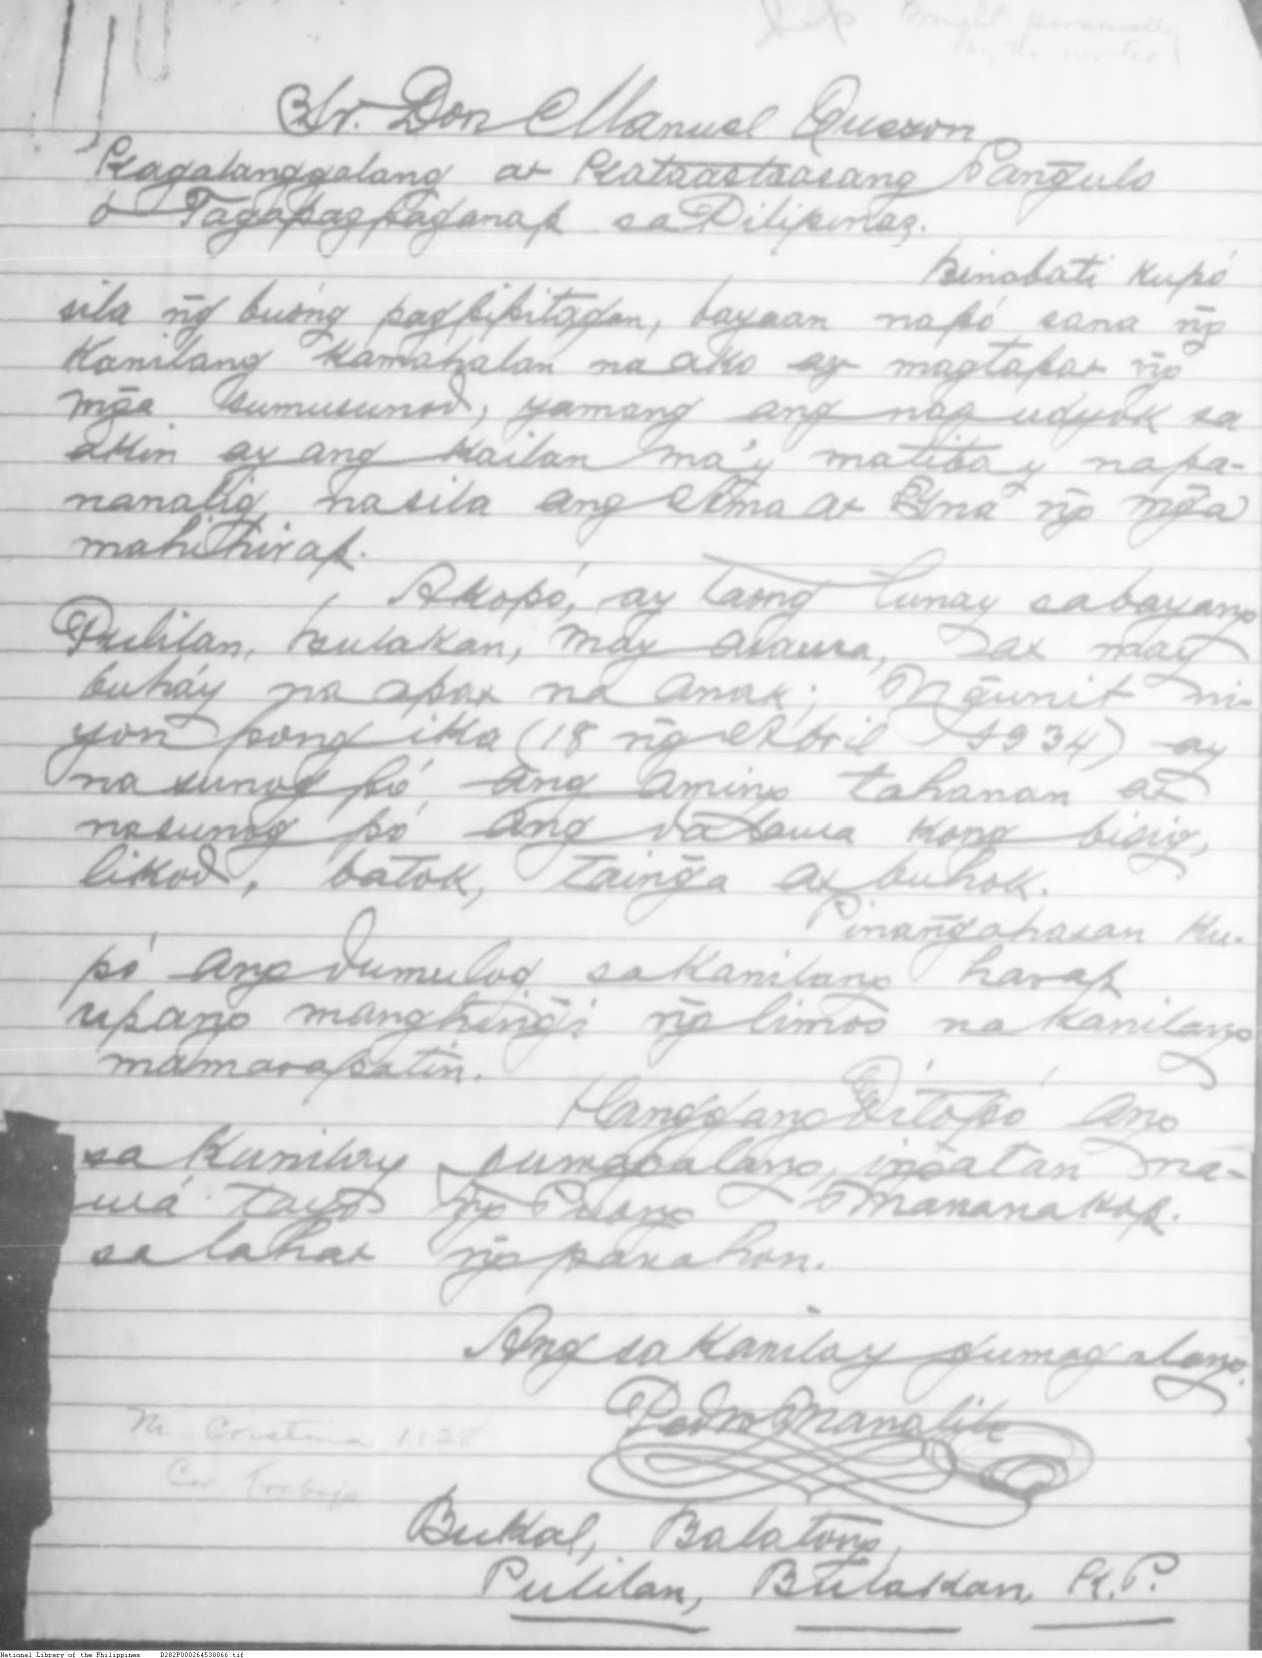 help Brought personally
by the writer
Sr. Don Manuel Quezon
Kagalanggalang at Kataastaasang Pangulo
ó Tagapagpaganap sa Pilipinas.
Binabati kupó
sila ng̃ buóng pagpipitagan, bayaan napó sana ng̃
Kanilang kamahalan na ako ay magtapat ng̃
mg̃a sumusunod, yamang ang nag udyok sa
akin ay ang kailan ma'y matibay napa-
nanalig, na sila ang Ama at Ina ng̃ mg̃a
mahihirap.
Akopó, ay taong tunay sabayang
Pulilan, Bulakan, may asawa, at may
buháy na apat na anak; Ng̃unit ni-
yon pong ika (18 ng̃ Abril 1934) ay
na sunog pó ang aming tahanan at
nasunog pó ang dalawa kong bisig,
likod, batok, taing̃a at buhok.
Pinang̃ahasan ku-
pó ang dumulog sa Kanilang harap
upang manghing̃i ng̃ limos na kanilang
mamarapatin.
Hanggang Ditopó ang
sa kanilay gumagalang, ing̃atan na-
wá tayo ng̃ Poong Mananakop.
sa lahat ng̃ panahon.
Ang sa kanilay gumagalang.
Pedro Manalili
M. Cristina 1128
Cor. Trabajo
Bukal, Balatong,
Pulilan, Bulakan, K.P.
National Library of the Philippines D282P000264530066.tif